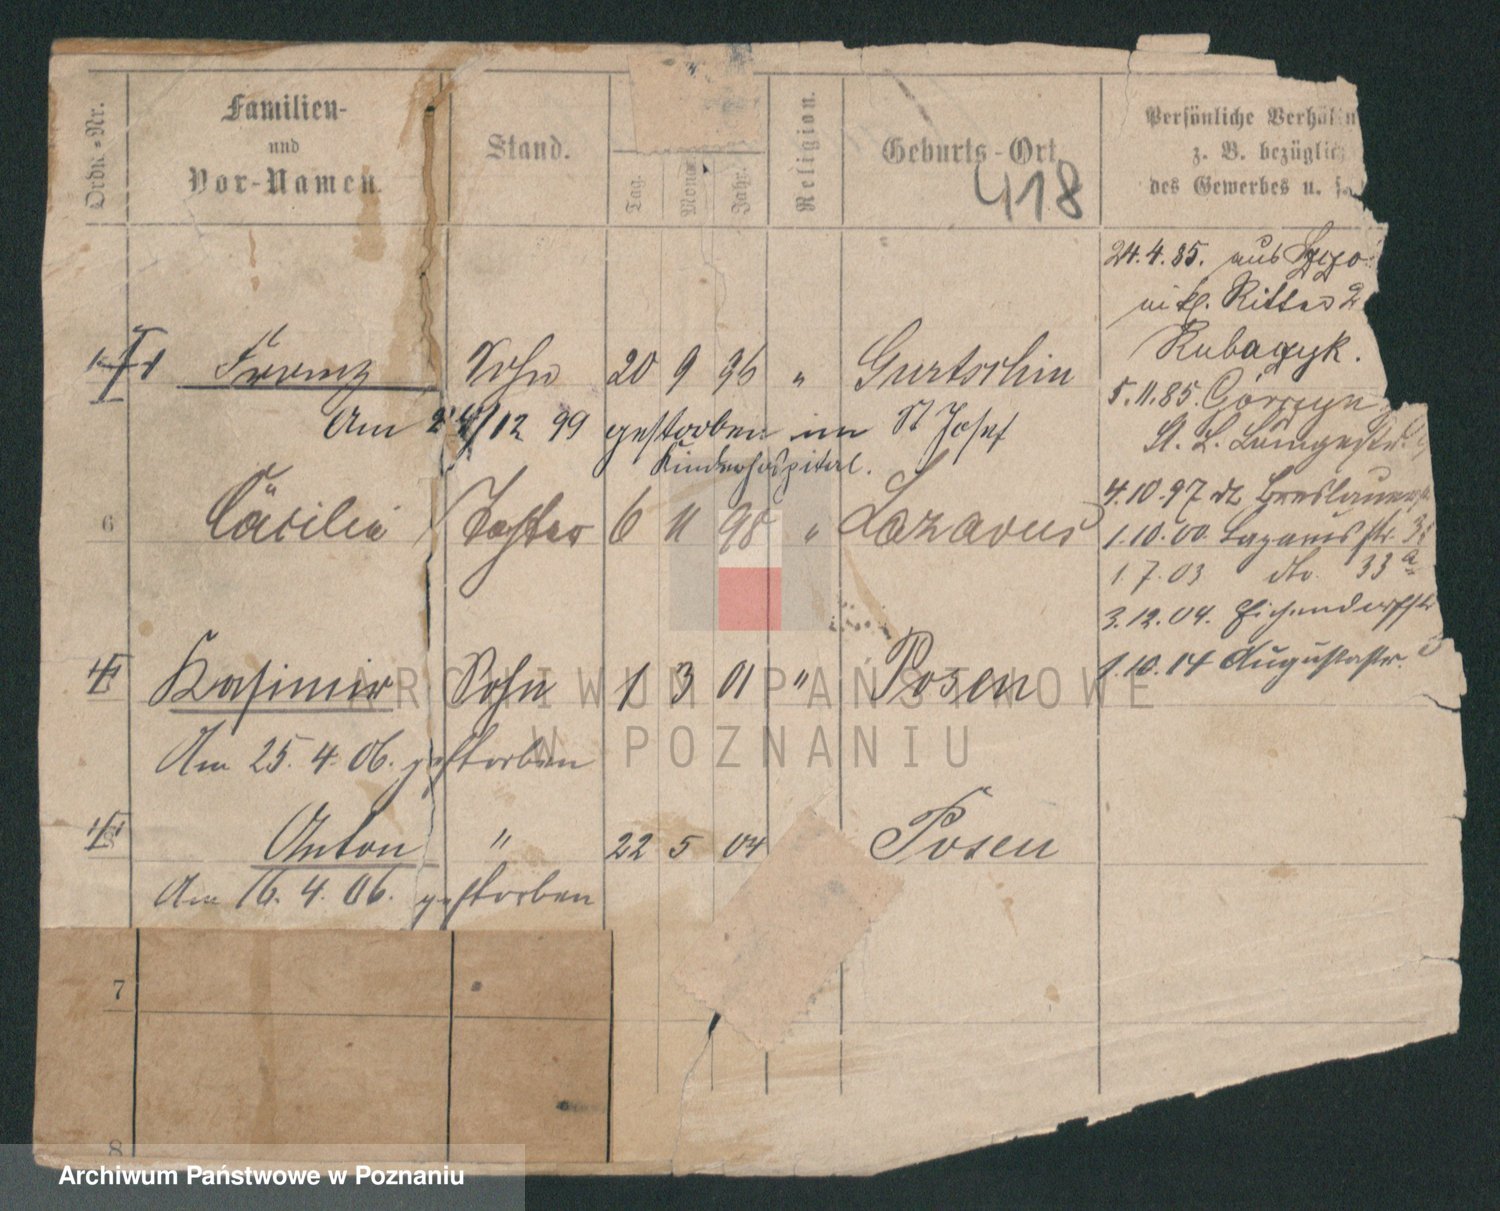 Ordn.-Nr.
Familien-
und
Vor-Namen.
Stand.
Tag.
Mona
Jahr.
Religion.
Geburts-Ort
418
Persönliche Verhält
z. B. bezüglich
des Gewerbes u. s.
24.4.85. aus
Ritter 2
5.11.85.
4.10.97
1.10.00. Lazarusstr. 33
1.7.03 dto. 33a
3.12.04. Eichendorffstr
1.10.14 Augustastr.
Franz Sohn 20 9 96 " Gurtschin
Am 24/12 99 gestorben im St Josef
Kinderhospital.
6 Cäcilie Tochter 6 11 98 " Lazarus
Kasimir Sohn 1 3 01 " Posen
Am 25. 4. 06. gestorben
Anton " 22 5 04 Posen
Am 16. 4. 06. gestorben
7
8
ARCHIWUM PAŃSTWOWE
W POZNANIU
Archiwum Państwowe w Poznaniu